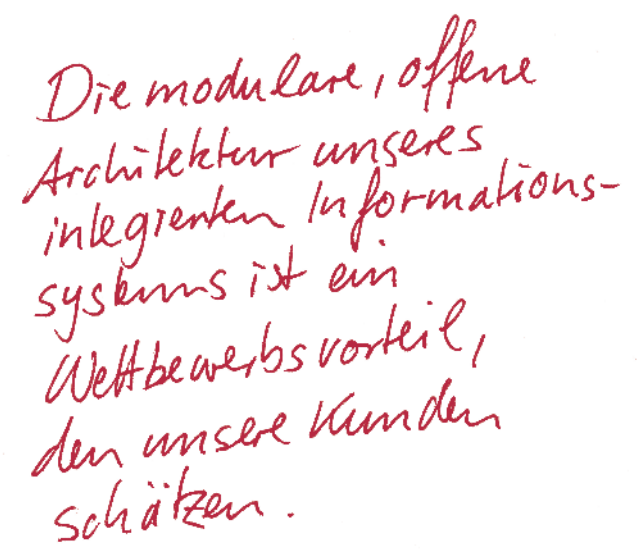 Die modulare, offene
Architektur unseres
integrierten Informations-
systems ist ein
Wettbewerbsvorteil,
den unsere Kunden
schätzen.